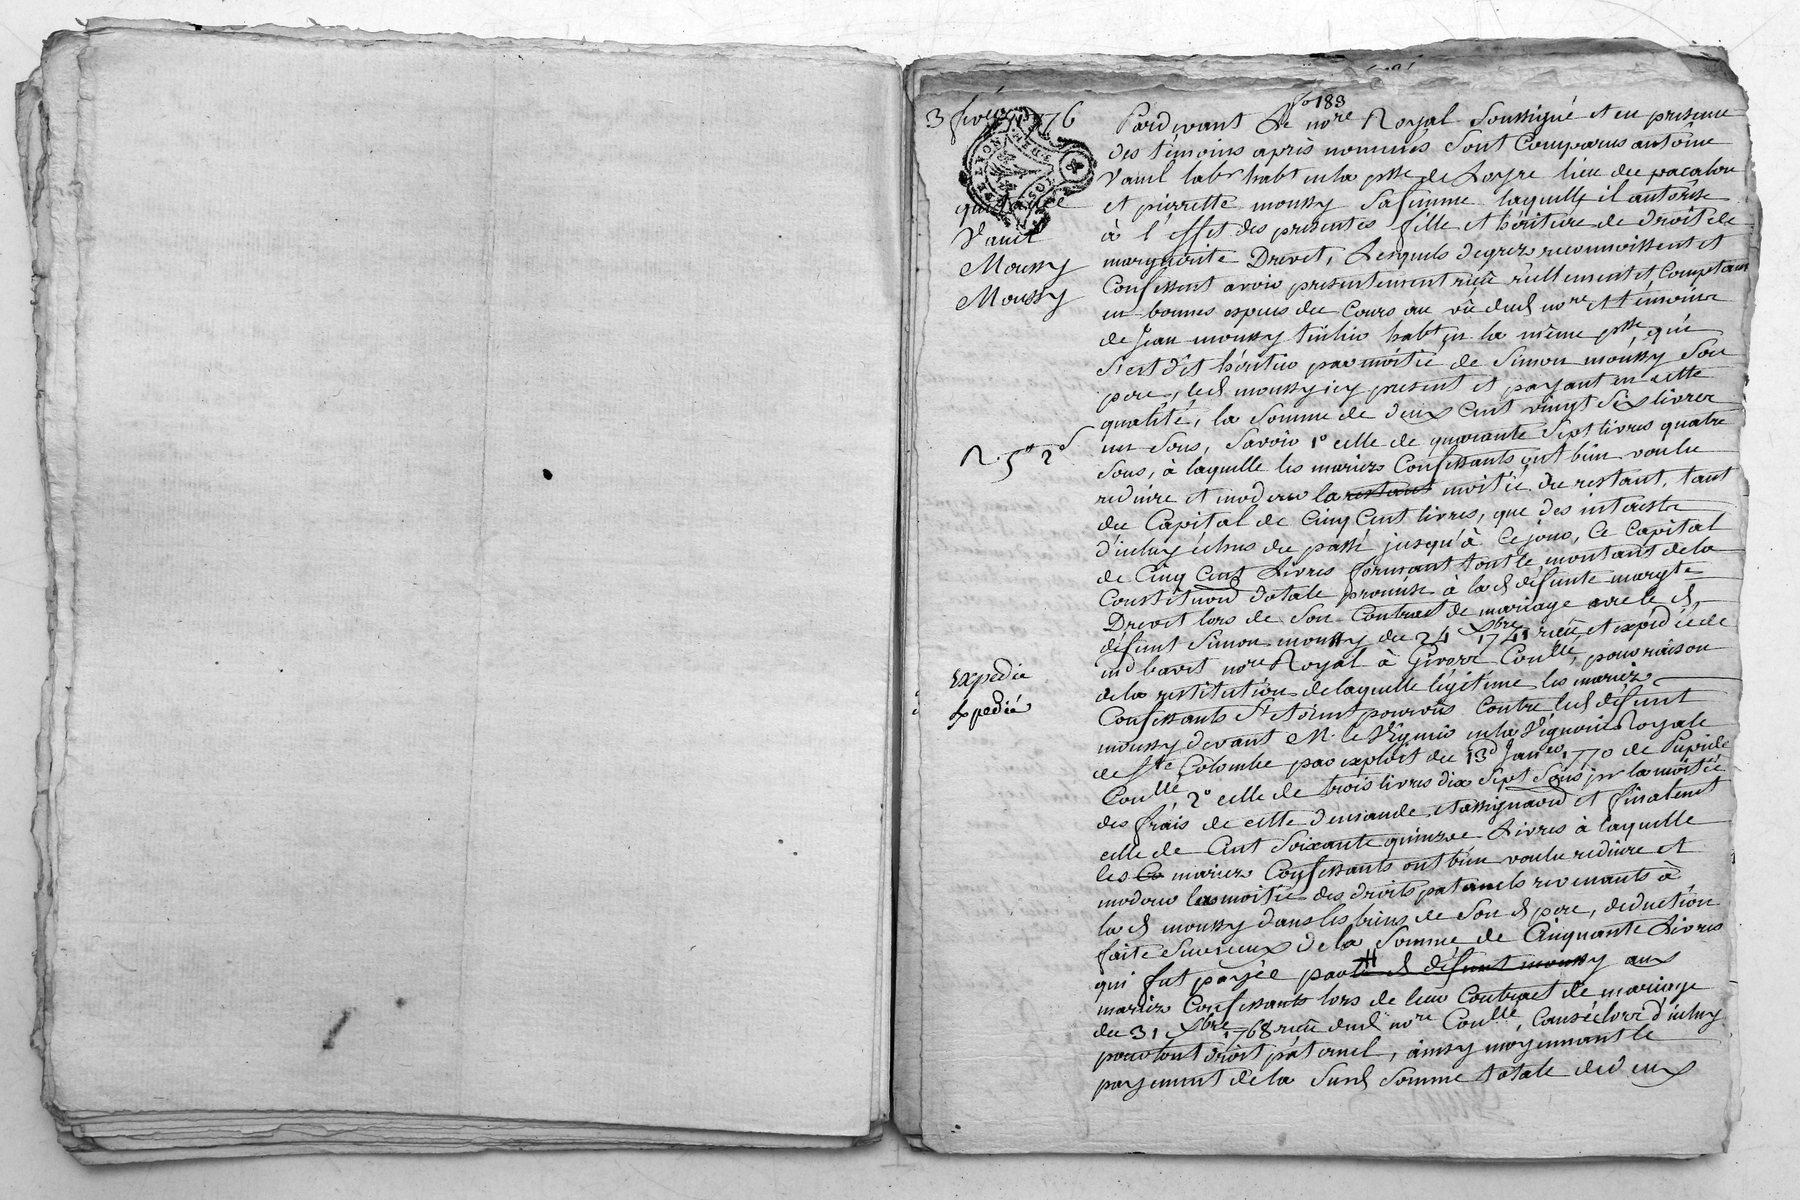 fo 183
3 fevier 1776
quittance
Vanel
Moussy
Moussy
R. 5# 2s
Expedié
Expedié
Pardevant Le nore Royal Soussigné et en presence
des témoins après nommés Sont Comparus antoine
Vanel labr habt en la psse de Loyre lieu du pacalon
et pierrette moussy Sa femme laquelle il autorise
à l'effet des presentes fille et héritiere de droit de
marguerite Drevet, Lesquels de grez reconnoissent et
Confessent avoir presentement reçu réellement et Comptant
en bonnes especes du Cours au vû dud nore et témoins
de Jean moussy habt en la même psse, qui
s'est dit héritier par moitié de Simon moussy Son
pere, led moussy icy present et payant en cette
qualité, la Somme de deux Cent vingt Six livres
un Sous, Savoir 1o celle de quarante Sept livres quatre
Sous, à laquelle les mariez Confessants ont bien voulu
reduire et moderer la restant moitié du restant, tant
du Capital de Cinq Cent livres, que des interests
d'iceluy échus du passé jusqu'à Ce jour, Ce Capital
de Cinq Cent Livres formant tout le montant de la
Constitution dotale promise à lad défunte margte
Drevet lors de Son Contract de mariage avec le d
défunt Simon moussy du 24 Xbre 1741 reçu et expedié de
nore Royal à Givors Coulle, pour raison
de la restitution de laquelle légitime les mariez
Confessants S'etoient pourvûs Contre led défunt
moussy devant M. le Viguier en la Viguerie Royale
de Ste Colombe par exploit du 13e Janer 1770 de Pupide
Coulle, 2o celle de trois livres dix Sept Sous pr la moitié
des frais de cette demande, et assignation et finalement
celle de Cent Soixante quinze Livres à laquelle
les Co mariez Confessants ont bien voulu reduire et
moderer la moitié des droits paternels revenants à
la d moussy dans les biens de Son d pere, deduction
faite Sur iceux de la Somme de Cinquante Livres
qui fut payée par le d défunt moussy aux
mariez Confessants lors de leur Contract de mariage
du 31 Xbre 1768 reçu dud nore Coulle, d'iceluy
pour tout droit paternel, ainsy moyennant le
payement de la Susd Somme totale de deux